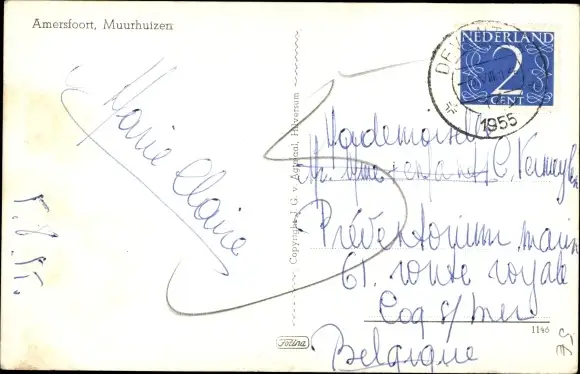 Amersfoort, Muurhuizen
NEDERLAND
2
CENT
1955
Marie Claire
5.8.55.
Copyright J. G. v. Agtmaal, Hilversum
Mademoiselle
C. Vermeylen
Préventorium marin
61. route royale
Coq s/mer
Belgique
Fotina
1146